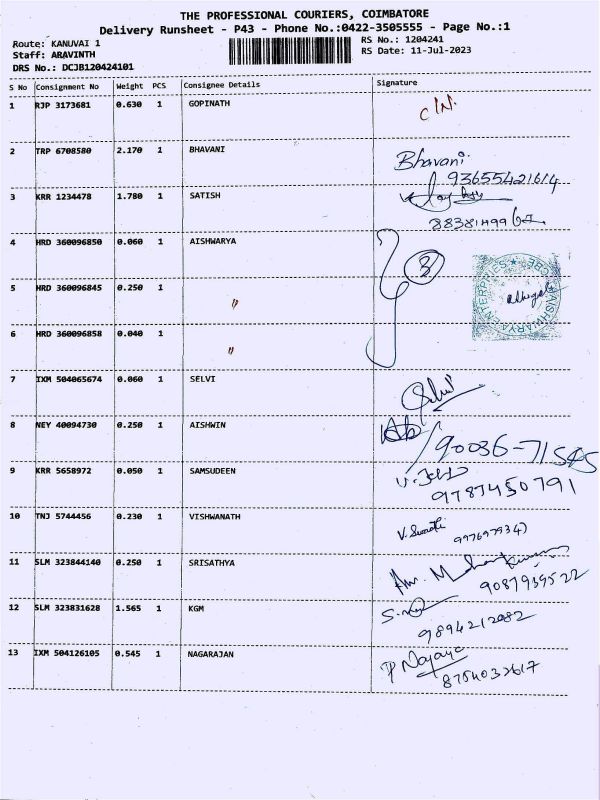 THE PROFESSIONAL COURIERS, COIMBATORE
Delivery Runsheet - P43 - Phone No.:0422-3505555 - Page No.:1
Route: KANUVAI 1
RS No.: 1204241
Staff: ARAVINTH
RS Date: 11-Jul-2023
DRS No.: DCJB120424101
S No Consignment No Weight PCS Consignee Details Signature
1 RJP 3173681 0.630 1 GOPINATH
2 TRP 6708580 2.170 1 BHAVANI Bhavani
93655421614
3 KRR 1234478 1.780 1 SATISH
4 HRD 360096850 0.060 1 AISHWARYA 3
AISHWARYA ENTERPRISES
5 HRD 360096845 0.250 1 "
6 HRD 360096858 0.040 1 "
7 IXM 504065674 0.060 1 SELVI
8 NEY 40094730 0.250 1 AISHWIN
90036-71545
9 KRR 5658972 0.050 1 SAMSUDEEN
9787450791
10 TNJ 5744456 0.230 1 VISHWANATH V. Sumathi
11 SLM 323844140 0.250 1 SRISATHYA
9087939522
12 SLM 323831628 1.565 1 KGM
9894212082
13 IXM 504126105 0.545 1 NAGARAJAN
8754032617